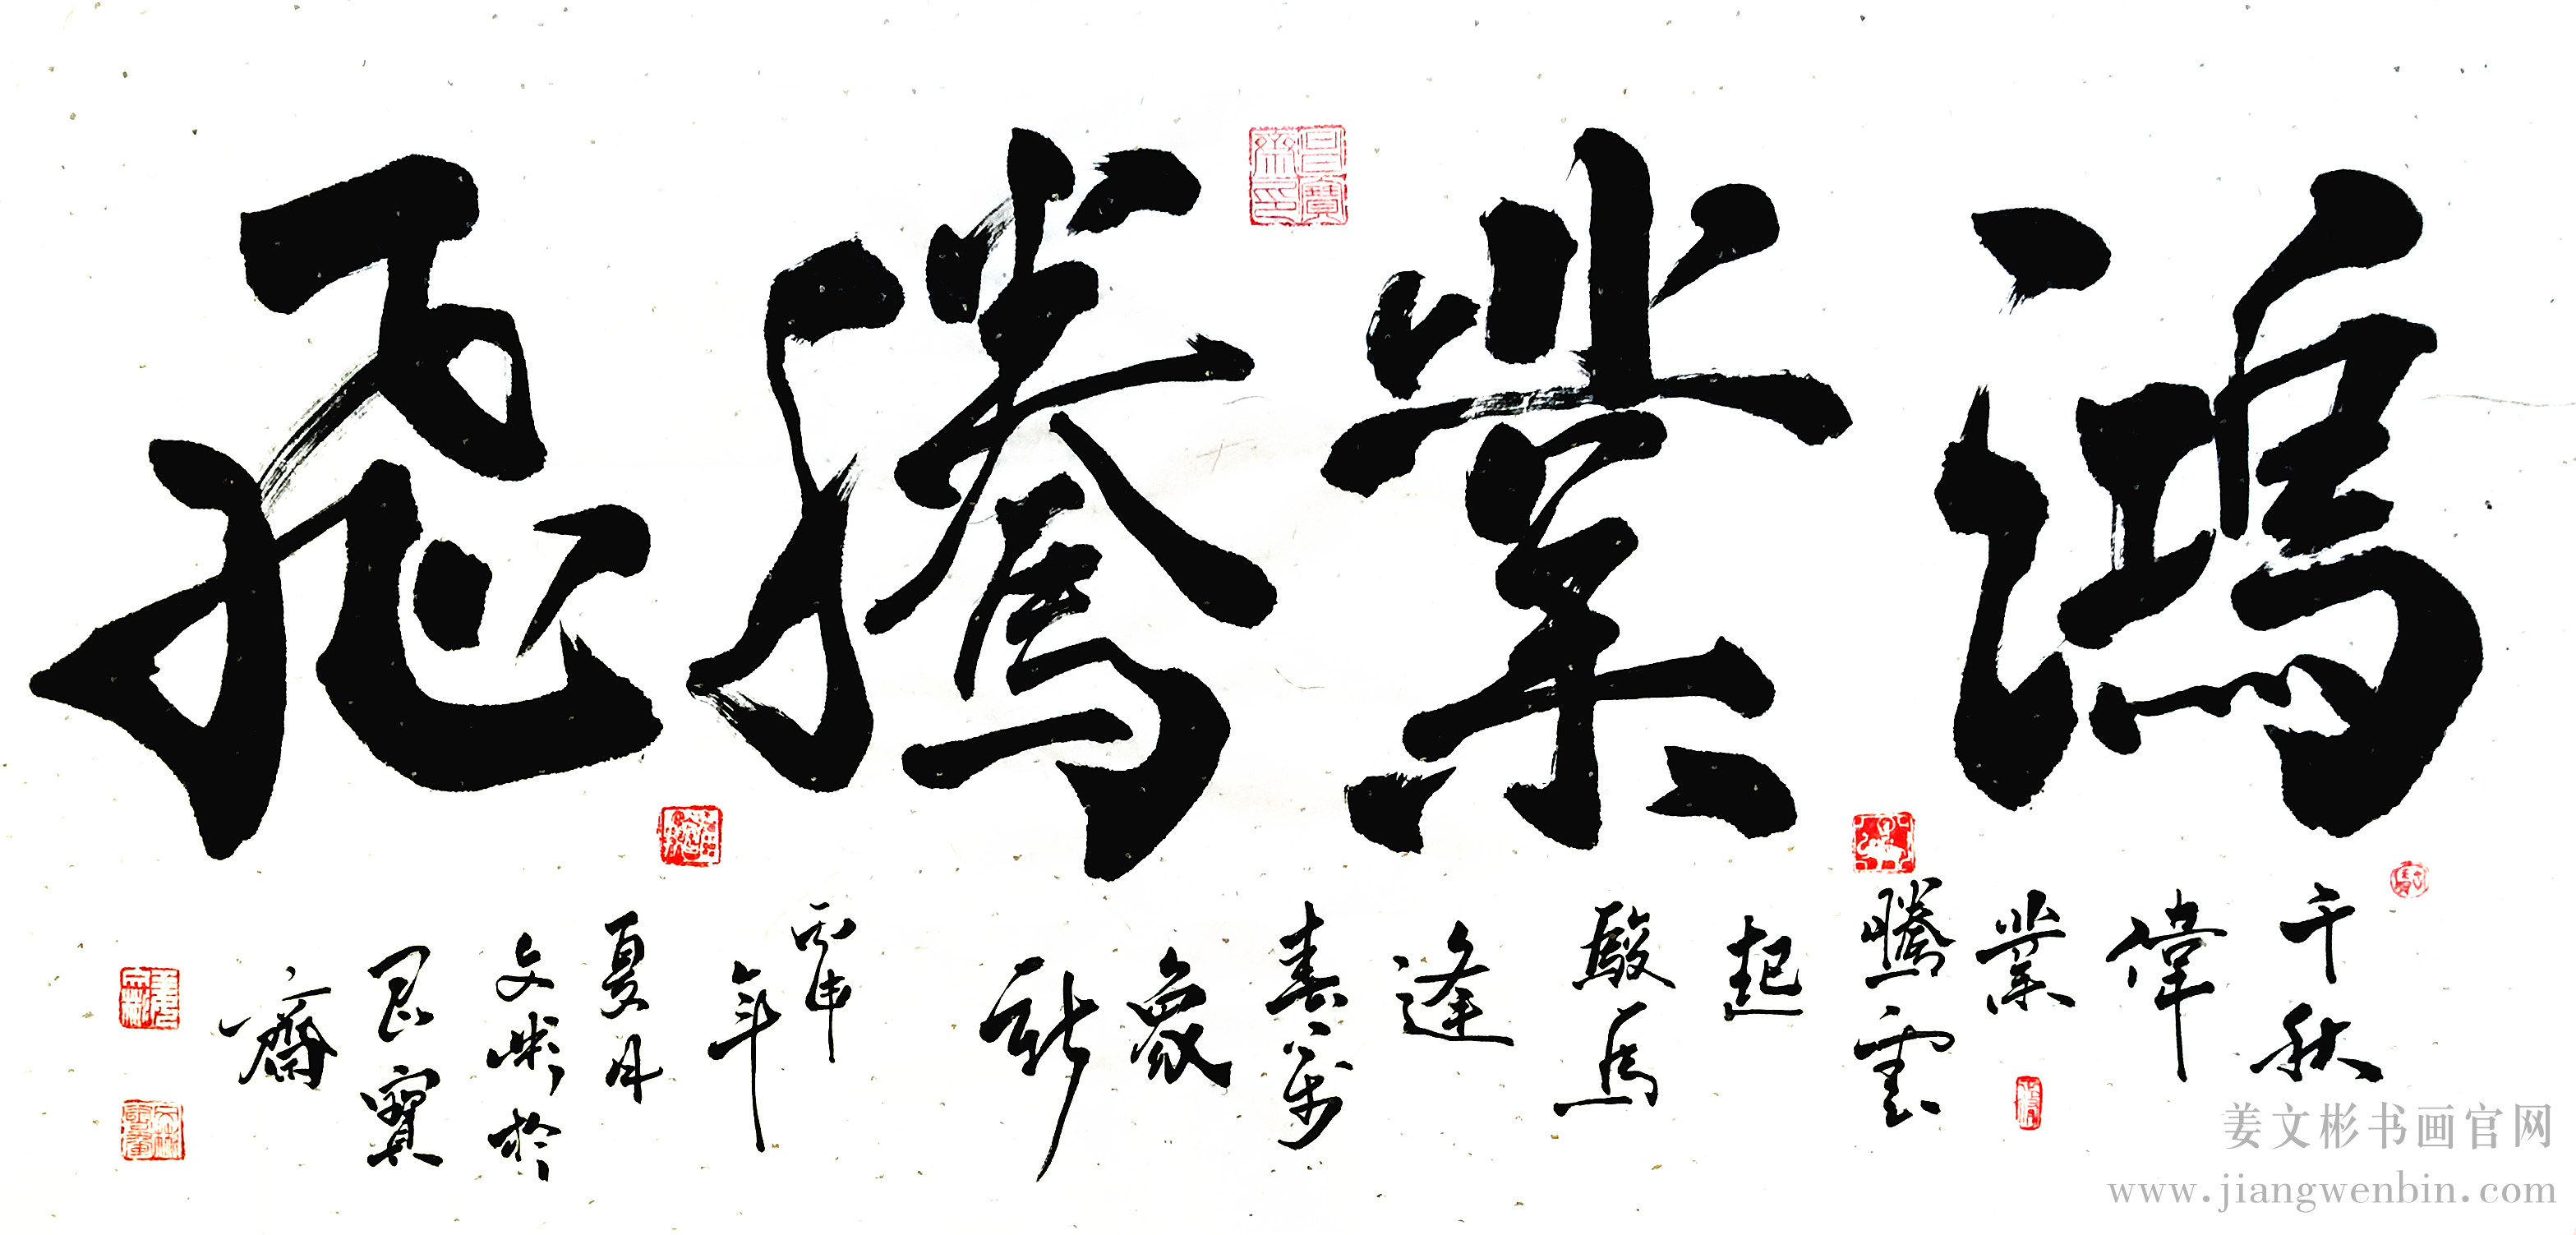 鴻業騰飛
千秋
偉
業
騰雲
起
駿馬
逢
春萬
象
新
丙申
年
夏月
文彬於
昌寶
齋
姜文彬书画官网
www.jiangwenbin.com